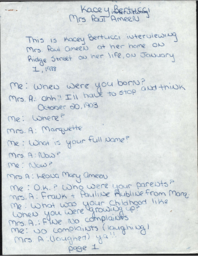 Kacey Bertucci
Mrs Paul Ameen
This is Kacey Bertucci interviewing
Mrs. Paul Ameen at her home on
Ridge Street on her life on January
1,
Me: When were you born?
Mrs. A: Ooh? I'll have to stop and think
October 30, 1903
Me: Where?
Mrs. A: Marquette
Me: What is your full name?
Mrs. A: Now?
Me: Now?
Mrs. A: Mary Ameen
Me: O.K.? Who were your parents?
Mrs. A: Frank + Pauline from
Me: What was your Childhood like
When you were growing up?
Mrs. A: Fine No complaints
Me: No complaints (laughing)
Mrs A
page 1